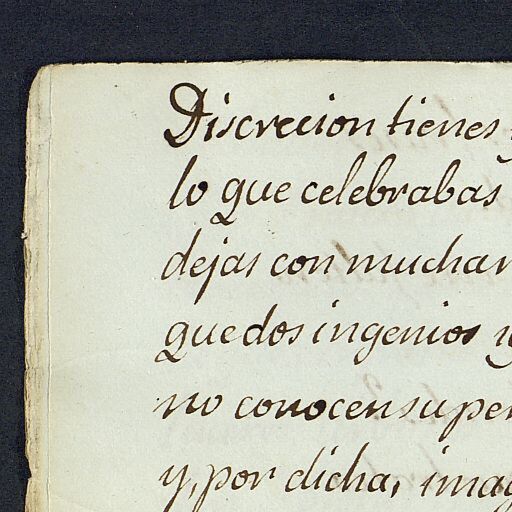 Discrecion tienes
lo que celebrabas
dejas con mucha
que dos ingenios
no conocen super
y, por dicha, imag